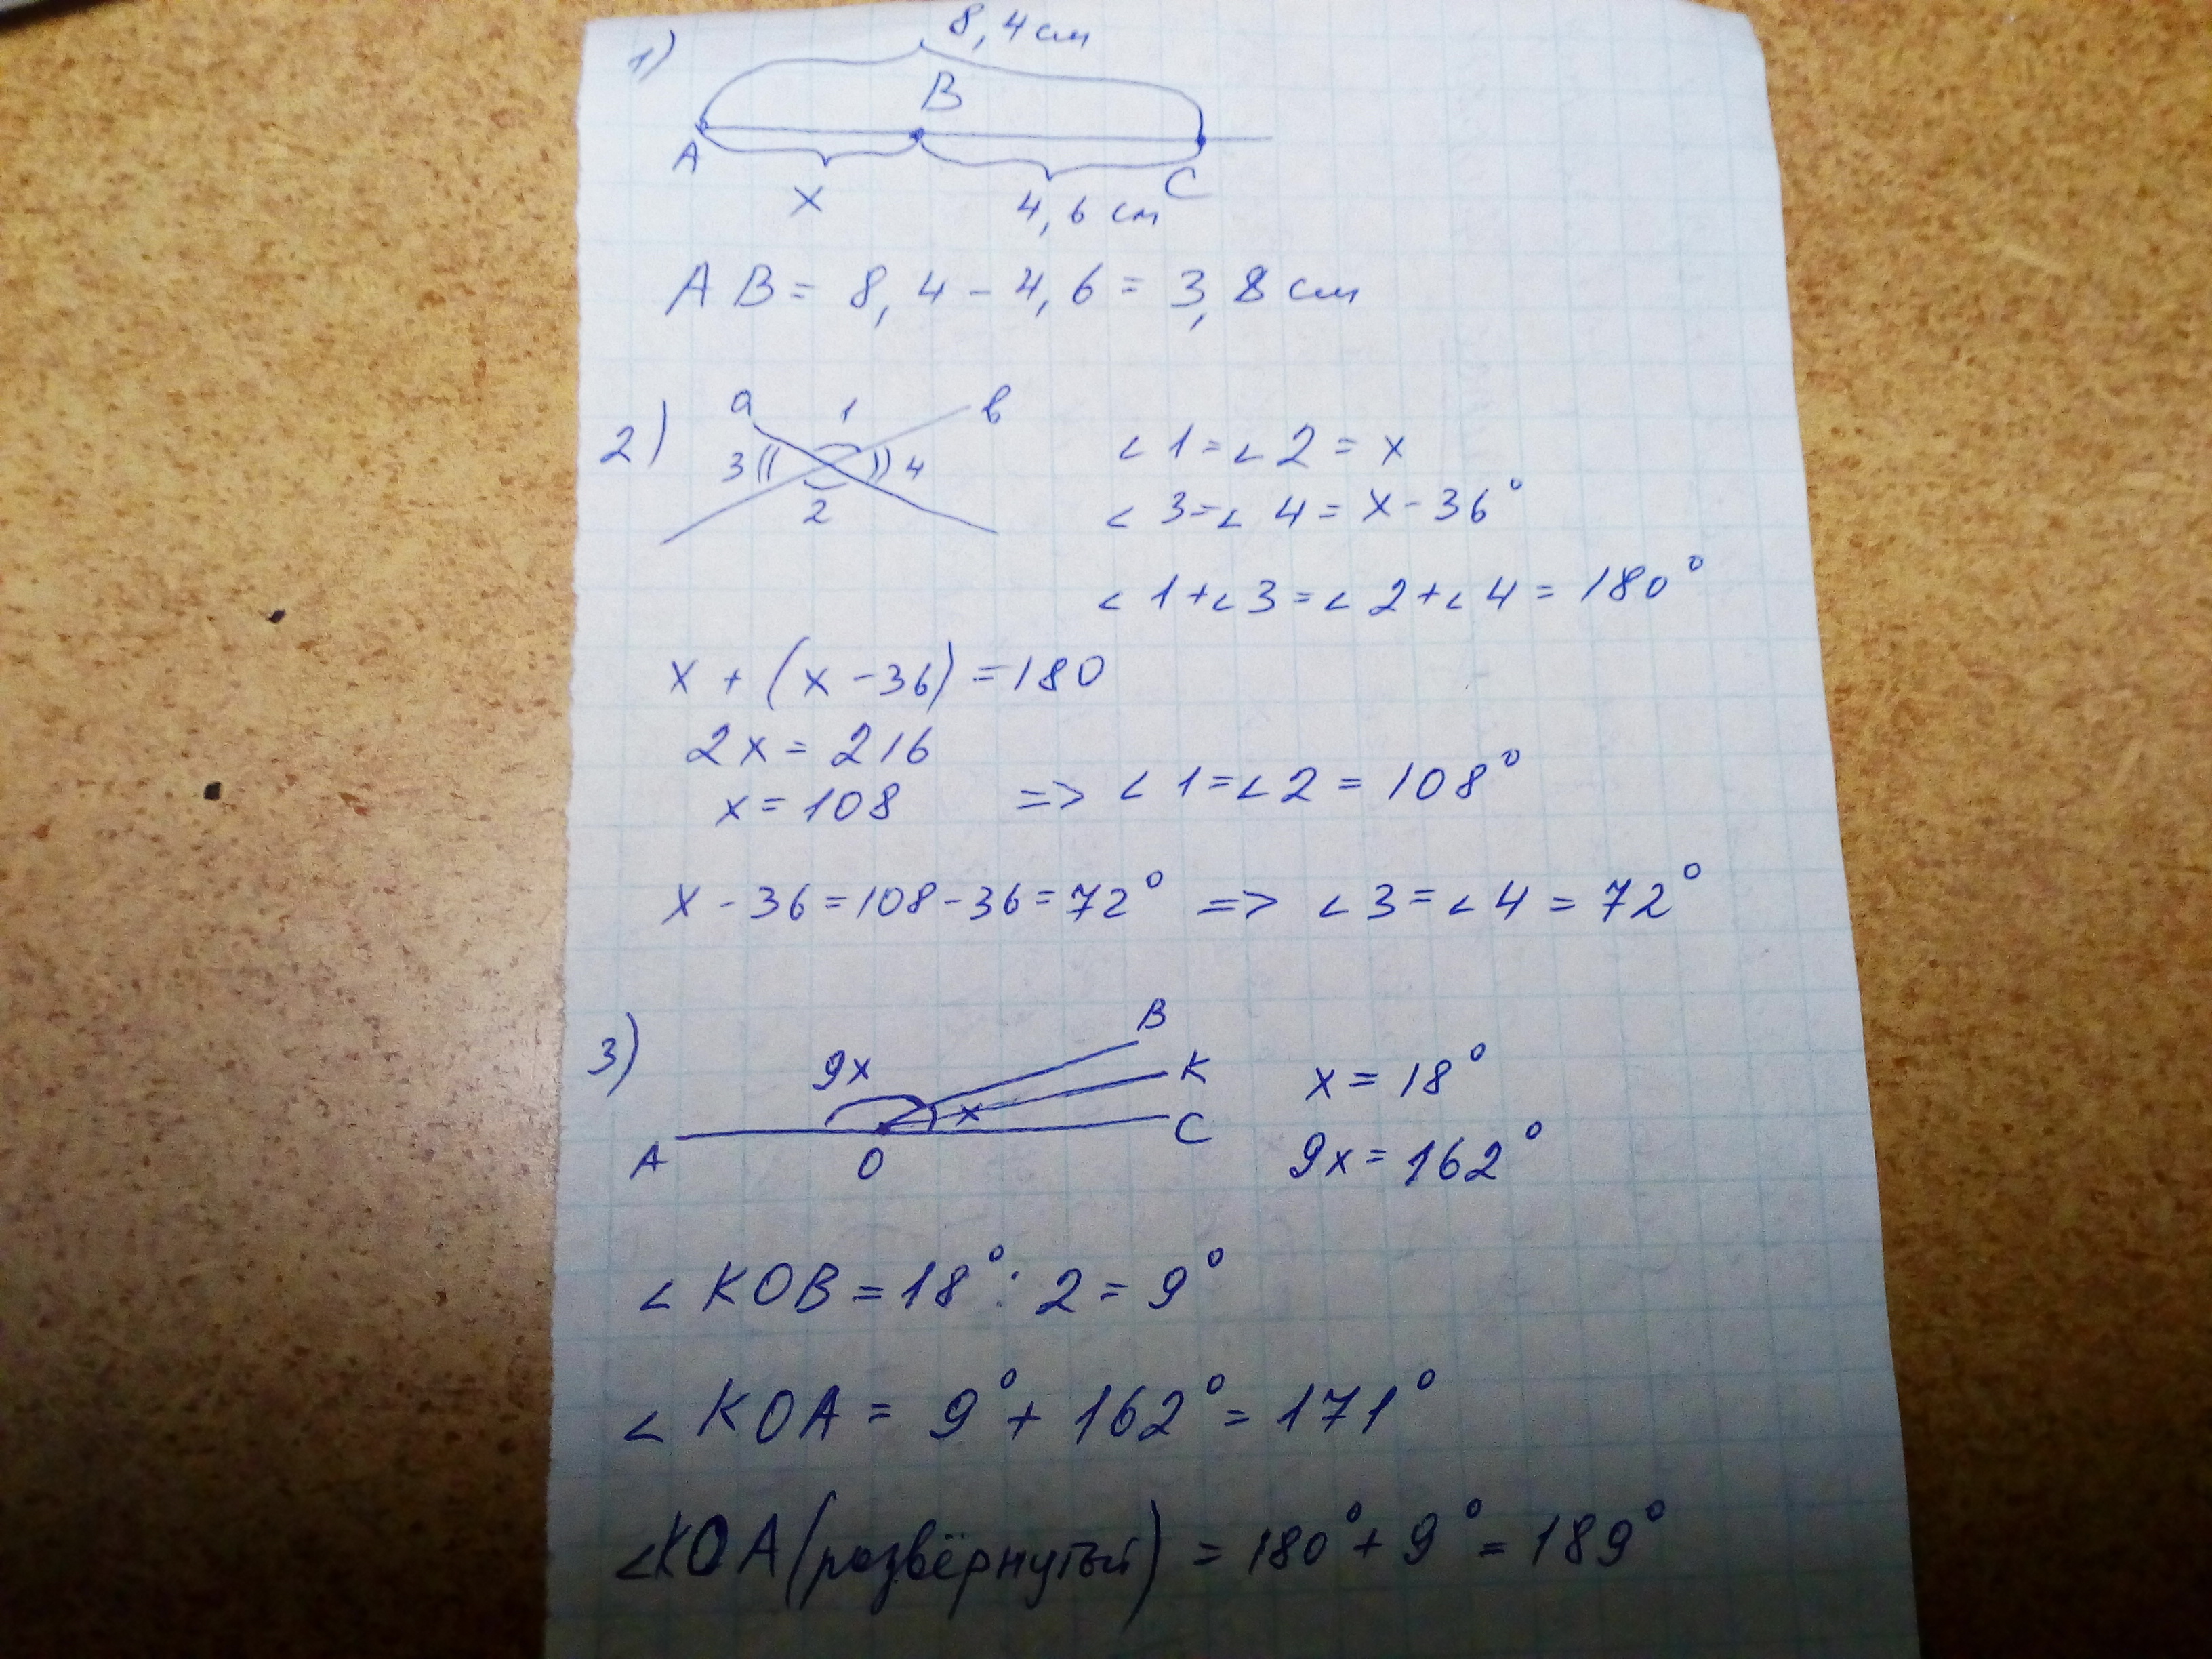 1)
8,4 см
B
A
C
x
4,6 см
AB = 8,4 - 4,6 = 3,8 см
2)
a 1 b
3 4
2
∠1 = ∠2 = x
∠3 = ∠4 = x - 36°
∠1 + ∠3 = ∠2 + ∠4 = 180°
x + (x - 36) = 180
2x = 216
x = 108 => ∠1 = ∠2 = 108°
x - 36 = 108 - 36 = 72° => ∠3 = ∠4 = 72°
3)
B
9x
K
x
A
O
C
x = 18°
9x = 162°
∠KOB = 18° : 2 = 9°
∠KOA = 9° + 162° = 171°
∠KOA (развёрнутый) = 180° + 9° = 189°